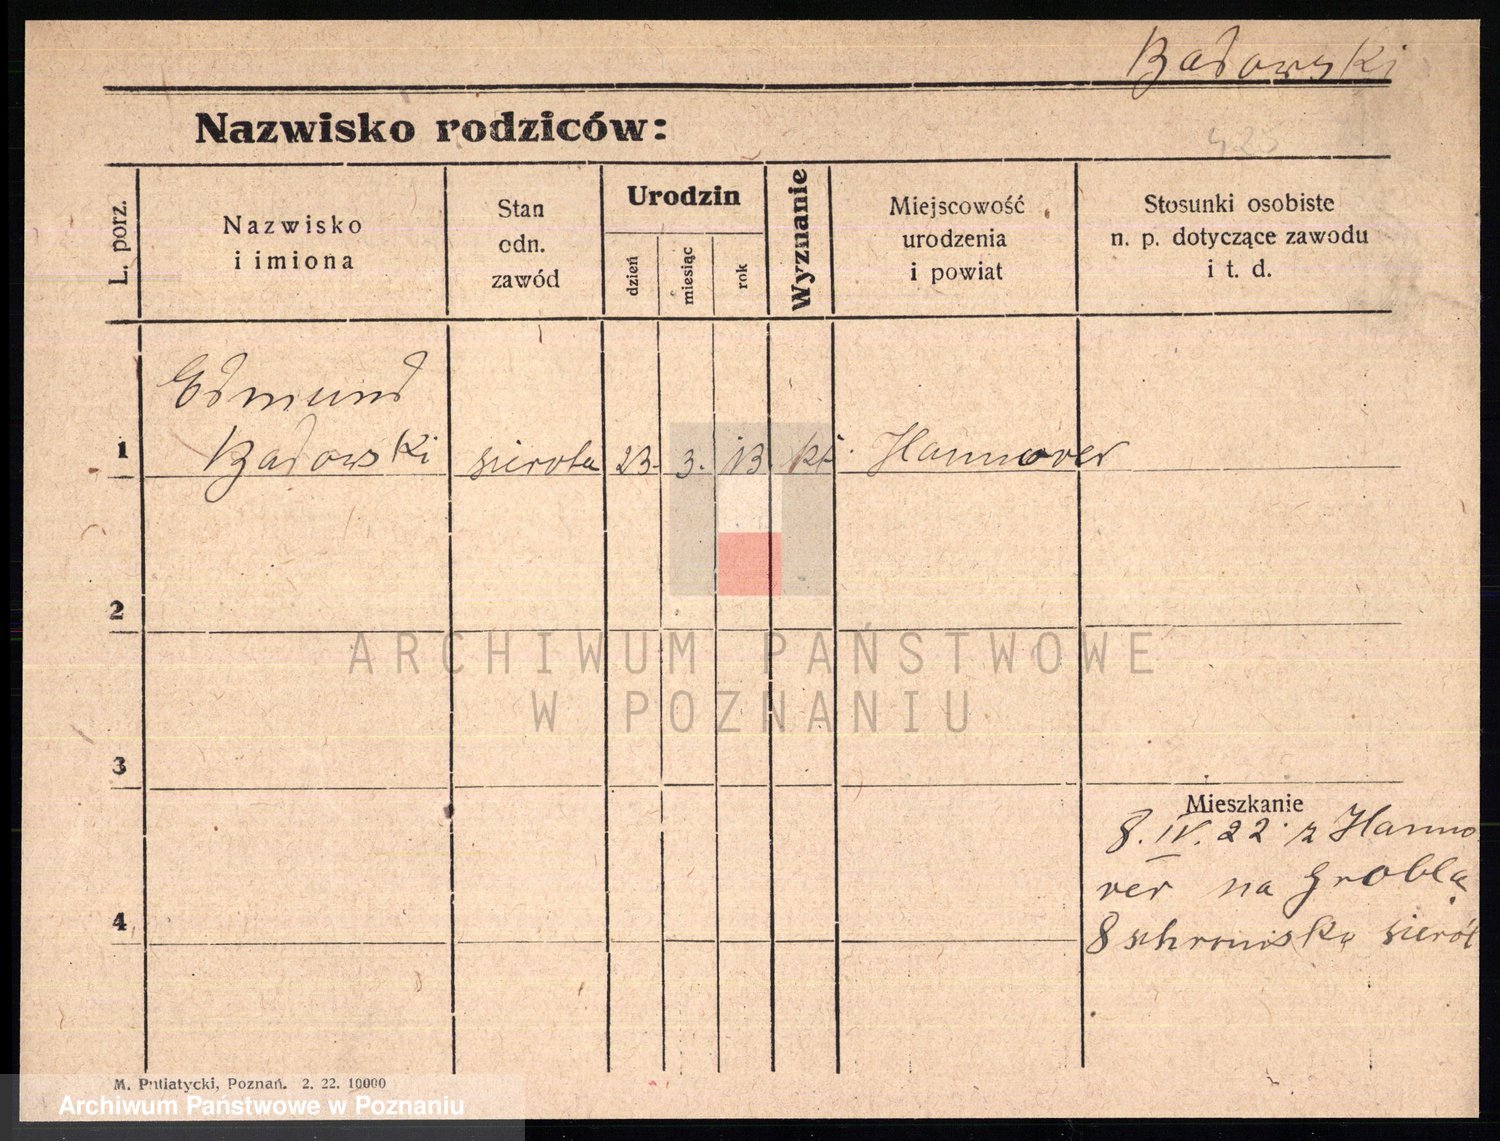 Badowski
Nazwisko rodziców:
425
L. porz.
Nazwisko
i imiona
Stan
odn.
zawód
Urodzin
dzień
miesiąc
rok
Wyznanie
Miejscowość
urodzenia
i powiat
Stosunki osobiste
n. p. dotyczące zawodu
i t. d.
Edmund
1 Badowski sierota 23. 3. 13 kt. Hannover
2
ARCHIWUM PAŃSTWOWE
W POZNANIU
3
Mieszkanie
8. IV. 22. z Hanno
ver na Groblą
4
8 schronisko sierót
M. Putiatycki, Poznań. 2. 22. 10000
Archiwum Państwowe w Poznaniu